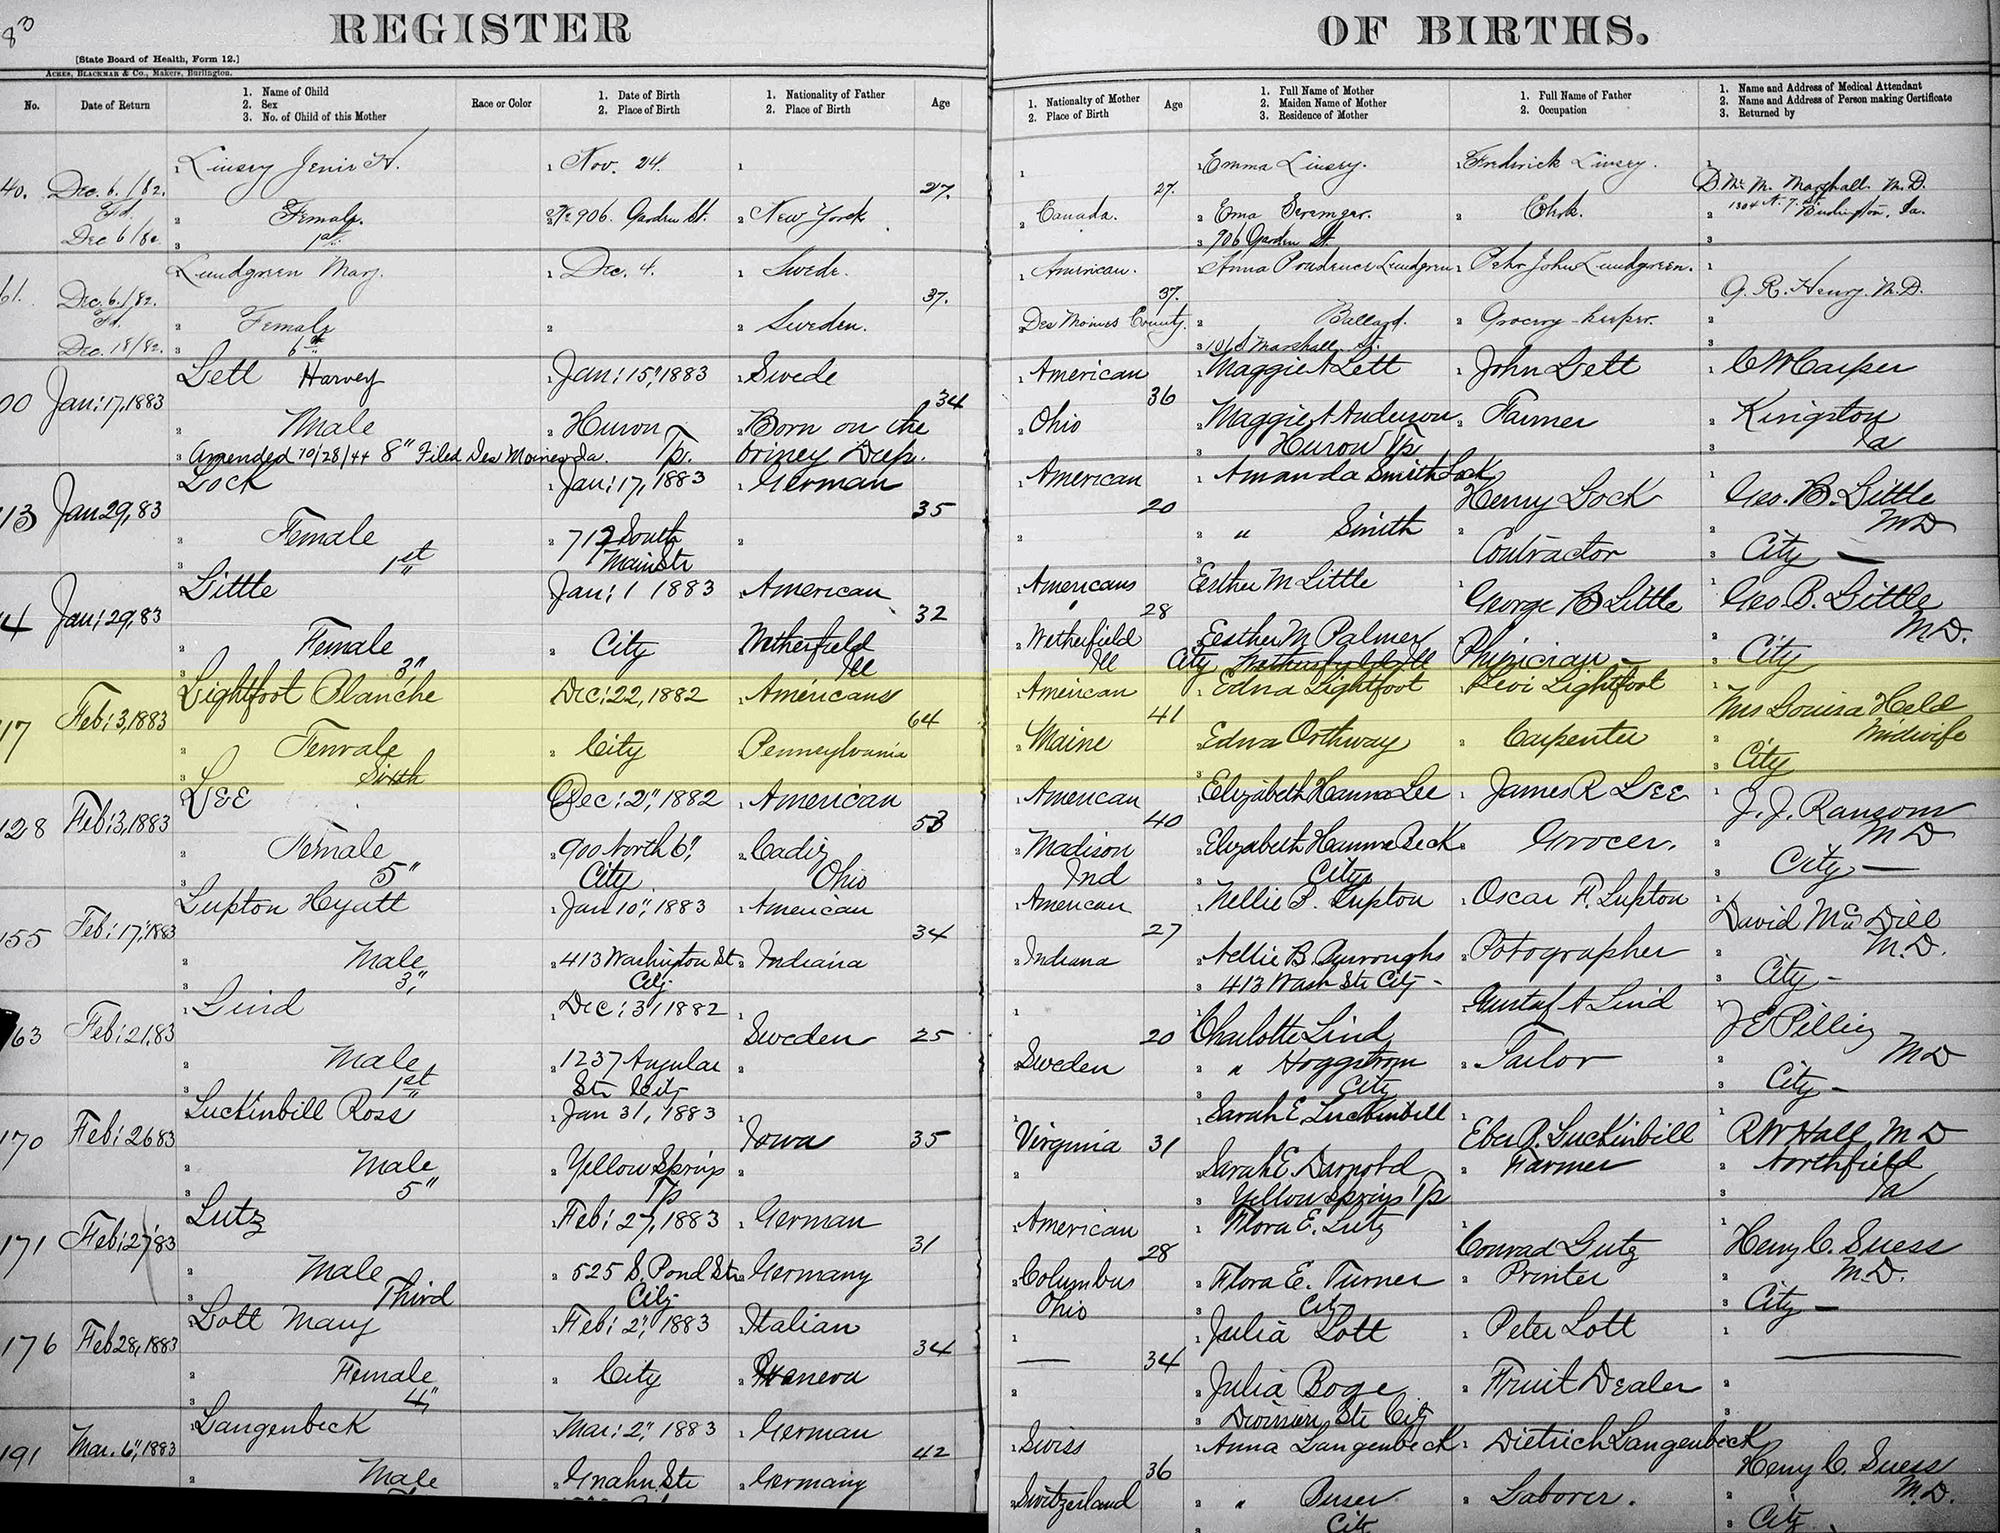 83
REGISTER OF BIRTHS.
[State Board of Health, Form 12.]
Acres, Blackmar & Co., Makers, Burlington.
No.
Date of Return
1. Name of Child
2. Sex
3. No. of Child of this Mother
Race or Color
1. Date of Birth
2. Place of Birth
1. Nationality of Father
2. Place of Birth
Age
1. Nationality of Mother
2. Place of Birth
Age
1. Full Name of Mother
Maiden Name of Mother
3. Residence of Mother
1. Full Name of Father
2. Occupation
1. Name and Address of Medical Attendant
2. Name and Address of Person making Certificate
3. Returned by
40. Dec. 6./82.
Fd.
Dec 6/82
Linsey Jenie H.
Female.
1st
Nov. 24.
906. Garden St.
New York
27.
Canada.
27.
Emma Linsey.
Ema
906 Garden St.
Fredrick Linsey.
Clerk.
Marshall M.D.
1304 N. 7. St.
Burlington, Ia.
61. Dec. 6./82.
Fd.
Dec. 18/82.
Lundgreen Mary.
Female
6th
Dec. 4.
Swede.
Sweden.
37.
American.
Des Moines County.
37.
Anna Prudence Lundgren
Ballard.
Marshall St.
Petr John Lundgreen.
Grocery-keeper.
G. R. Henry M.D.
00 Jan: 17, 1883
Lett Harvey
Male
Amended 10/28/44 8" Filed Des Moines Ia.
Jan: 15", 1883
Huron Tp.
Swede
Born on the
briney Deep.
34
American
Ohio
36
Maggie A Lett
Maggie A Anderson
Huron Tp
John Lett
Farmer
C W Carper
Kingston
Ia
13 Jan 29, 83
Lock
Female
1st
Jan: 17, 1883
712 South
Main Str
German
35
American
20
Amanda Smith Lock
" Smith
Henry Lock
Contractor
Geo. B. Little
MD
City —
14 Jan: 29, 83
Little
Female
3"
Jan: 1 1883
City
American
Wetherfield
Ill
32
Americans
Wetherfield
Ill
28
Eesther M Little
Eesther M Palmer
City
George B Little
Physician —
Geo. B. Little
M.D.
City
17 Feb: 3, 1883
Lightfoot Blanche
Female
Sixth
Dec: 22, 1882
City
Americans
Pennsylvania
64
American
Maine
41
Edna Lightfoot
Edna Orthway
Levi Lightfoot
Carpenter
Mrs Louisa Held
Midwife
City
128 Feb: 3, 1883
LEE
Female
5"
Dec: 2", 1882
900 North 6",
City
American
Cadiz
Ohio
53
American
Madison
Ind
40
Elizabeth Hanna Lee
Elizabeth Hanna Beck
City
James R LEE
Grocer.
J. J. Ransom
MD
City —
155 Feb: 17, 1883
Lupton Hyatt
Male
3",
Jan 10", 1883
413 Washington St
City
American
Indiana
34
American
Indiana
27
Nellie B. Lupton
Nellie B Burroughs
413 Wash Str City -
Oscar F. Lupton
Potographer
David McDill
M.D.
City -
163 Feb: 21, 83
Lind
Male
1st
Dec: 31 1882
1237 Angular
Str City
Sweden
25
Sweden
20
Charlotte Lind
" Hoggstrom
City
Gustaf A Lind
Tailor
J E Pilling
MD
City -
170 Feb: 26 83
Luckinbill Ross
Male
5"
Jan 31, 1883
Yellow Springs
Tp
Iowa
35
Virginia
31
Sarah E Luckinbill
Sarah E. Darnold
Yellow Springs Tp
Eber P. Luckinbill
Farmer
R W Hall, MD
Northfield
Ia
171 Feb: 27, 83
Lutz
Male
Third
Feb: 27, 1883
525 S. Pond Str
City
German
Germany
31
American
Columbus
Ohio
28
Flora E. Lutz
Flora E. Turner
City
Conrad Lutz
Printer
Heny C. Suess
M.D.
City —
176 Feb 28, 1883
Lott Mary
Female
4"
Feb: 2", 1883
City
Italian
34
—
34
Julia Lott
Julia Boge
Division Str City
Peter Lott
Fruit Dealer
191 Mar. 6", 1883
Langenbeck
Male
Mar: 2", 1883
Gnahn Str
German
Germany
42
Swiss
Switzerland
36
Anna Langenbeck
" Buser
City
Dietrich Langenbeck
Laborer.
Heny C. Suess
M.D.
City